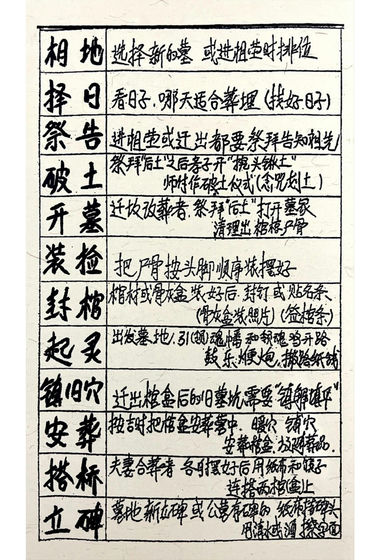 相地 选择新的墓 或进祖茔时排位
择日 看日子,哪天适合葬埋(找好日子)
祭告 进祖茔或迁出都要祭拜告知祖先
破土 祭拜“后土”之后孝子开“挽头锹土”
师付作破土仪式(念咒划土)
开墓 迁坟改葬者,祭拜“后土”打开墓冢
清理出棺椁尸骨
装捡 把尸骨按头脚顺序装摆好
封棺 棺材或骨灰盒装好后,封钉或贴名条
(骨灰盒装照片)(签按条)
起灵 出发墓地,引魂幡和铭旌开路
鼓乐鞭炮,撒路纸钱
镇旧穴 迁出棺盒后的旧墓坑需要“镇解填平”
安葬 按吉时把棺盒安葬墓中,暖穴 铺穴
安葬棺盒,放葬品
搭桥 夫妻合葬者 各自摆好后用纸布和镜子
连搭两棺盒上
立碑 墓地新立碑或公墓有碑的 纸布搭碑头
用清水或酒 擦里面